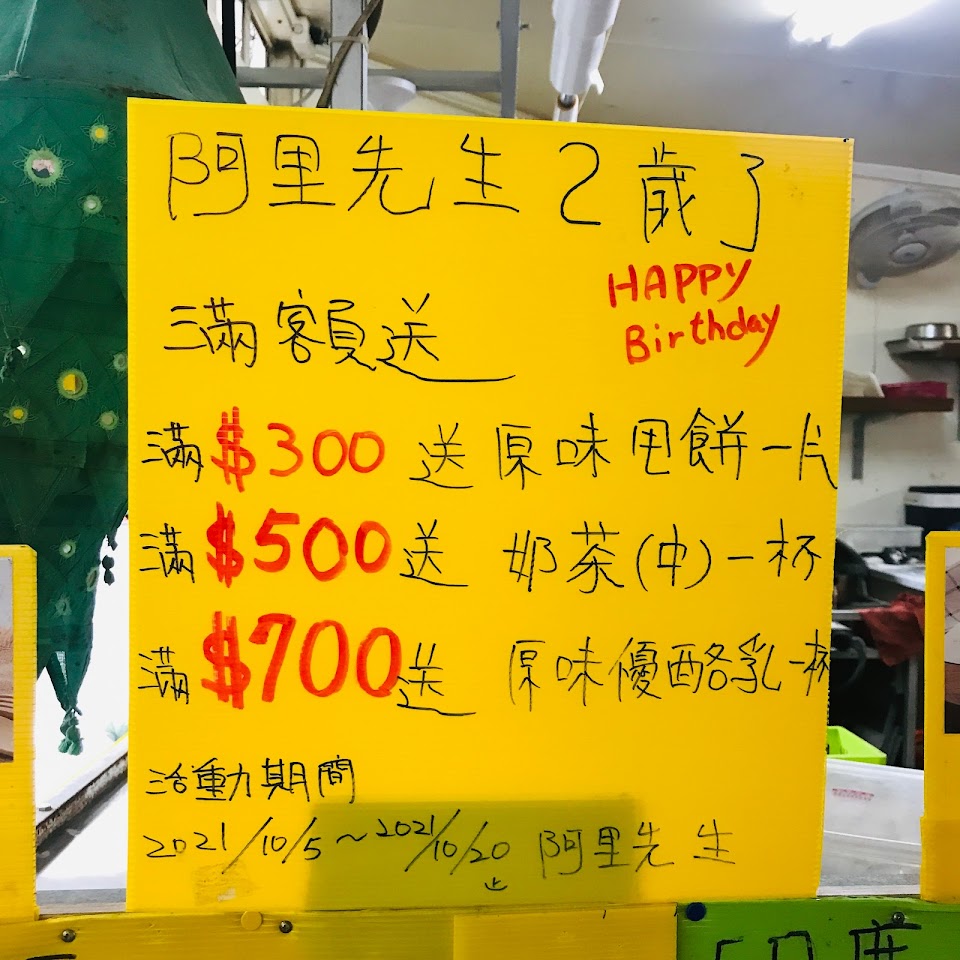 阿里先生2歲了
HAPPY
Birthday
滿客額送
滿$300送原味甩餅一片
滿$500送奶茶(中)一杯
滿$700送原味優酪乳一杯
活動期間
2021/10/5~2021/10/20止 阿里先生
印度